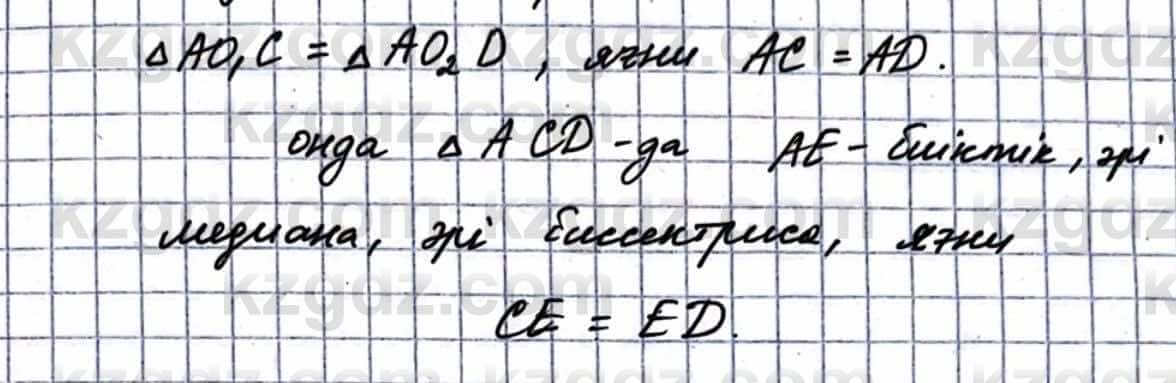 △AO₁C = △AO₂D, яғни AC = AD.
онда △ACD-да AE - биіктік, әрі
медиана, әрі биссектриса, яғни
CE = ED.